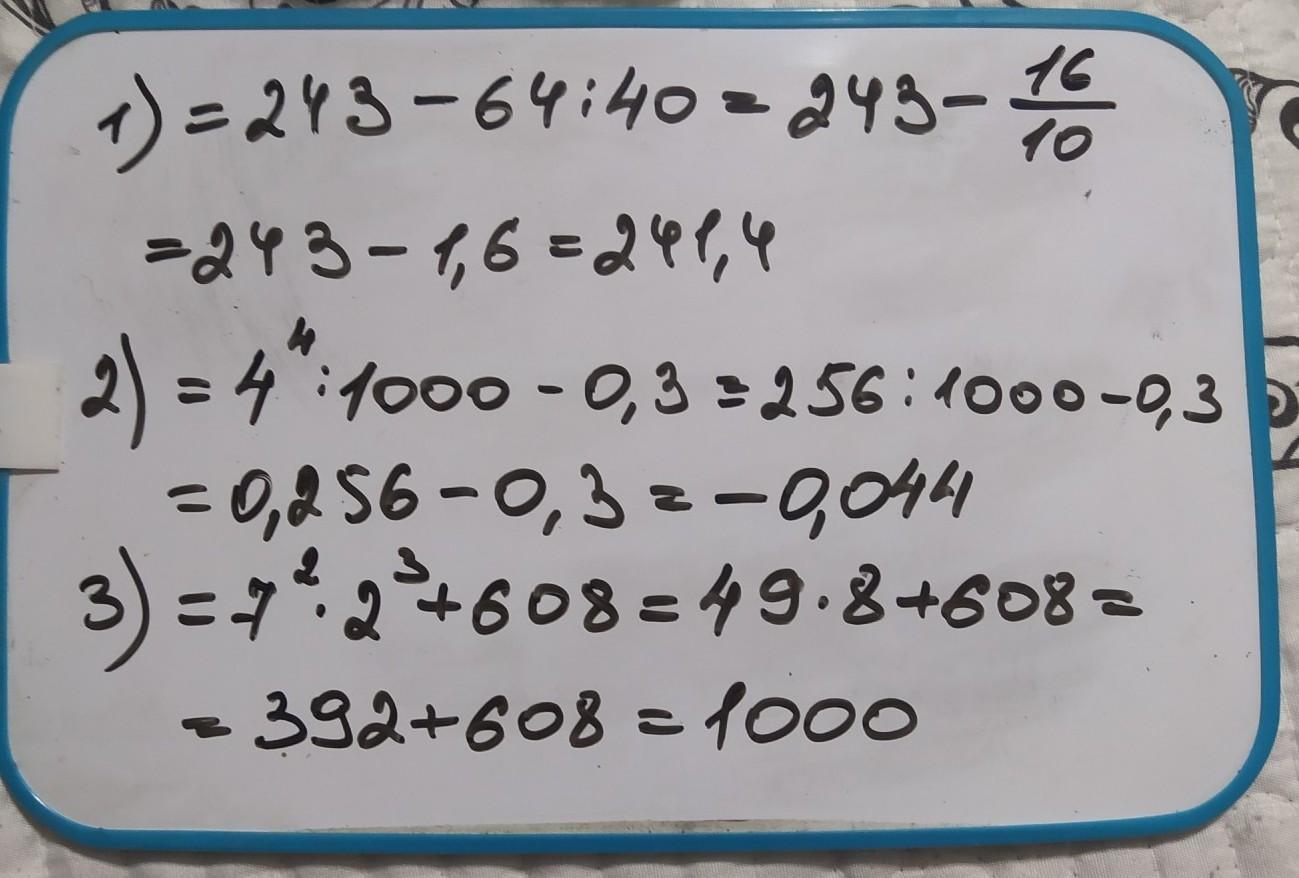 1) = 243 - 64 : 40 = 243 - 16/10
= 243 - 1,6 = 241,4
2) = 4⁴ : 1000 - 0,3 = 256 : 1000 - 0,3
= 0,256 - 0,3 = -0,044
3) = 7² · 2³ + 608 = 49 · 8 + 608 =
= 392 + 608 = 1000